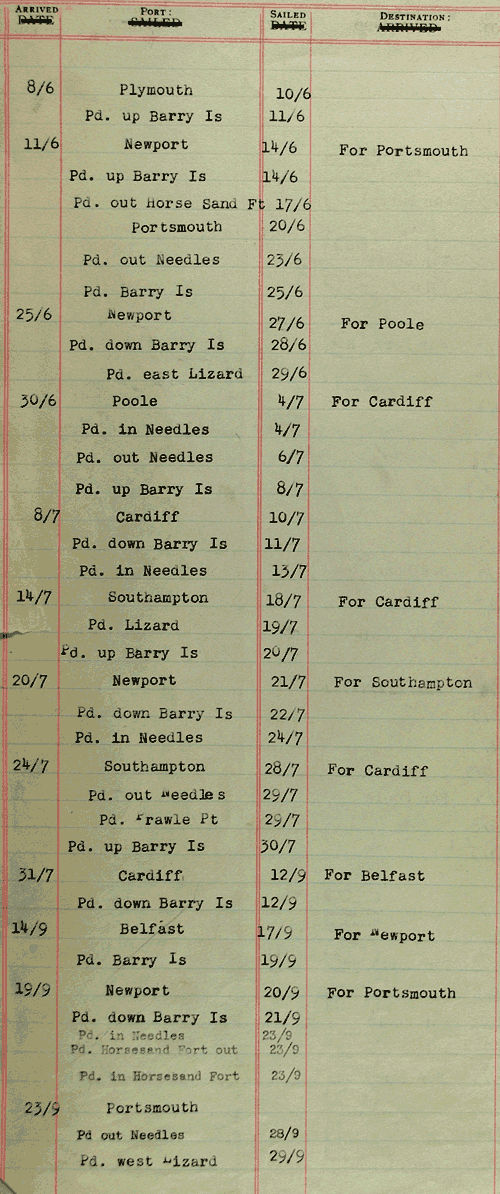 ARRIVED PORT: SAILED DESTINATION:
DATE SAILED DATE ARRIVED
8/6 Plymouth 10/6
Pd. up Barry Is 11/6
11/6 Newport 14/6 For Portsmouth
Pd. up Barry Is 14/6
Pd. out Horse Sand Ft 17/6
Portsmouth 20/6
Pd. out Needles 23/6
Pd. Barry Is 25/6
25/6 Newport 27/6 For Poole
Pd. down Barry Is 28/6
Pd. east Lizard 29/6
30/6 Poole 4/7 For Cardiff
Pd. in Needles 4/7
Pd. out Needles 6/7
Pd. up Barry Is 8/7
8/7 Cardiff 10/7
Pd. down Barry Is 11/7
Pd. in Needles 13/7
14/7 Southampton 18/7 For Cardiff
Pd. Lizard 19/7
Pd. up Barry Is 20/7
20/7 Newport 21/7 For Southampton
Pd. down Barry Is 22/7
Pd. in Needles 24/7
24/7 Southampton 28/7 For Cardiff
Pd. out Needles 29/7
Pd. Prawle Pt 29/7
Pd. up Barry Is 30/7
31/7 Cardiff 12/9 For Belfast
Pd. down Barry Is 12/9
14/9 Belfast 17/9 For Newport
Pd. Barry Is 19/9
19/9 Newport 20/9 For Portsmouth
Pd. down Barry Is 21/9
Pd. in Needles 23/9
Pd. Horsesand Fort out 23/9
Pd. in Horsesand Fort 23/9
23/9 Portsmouth
Pd out Needles 28/9
Pd. west Lizard 29/9